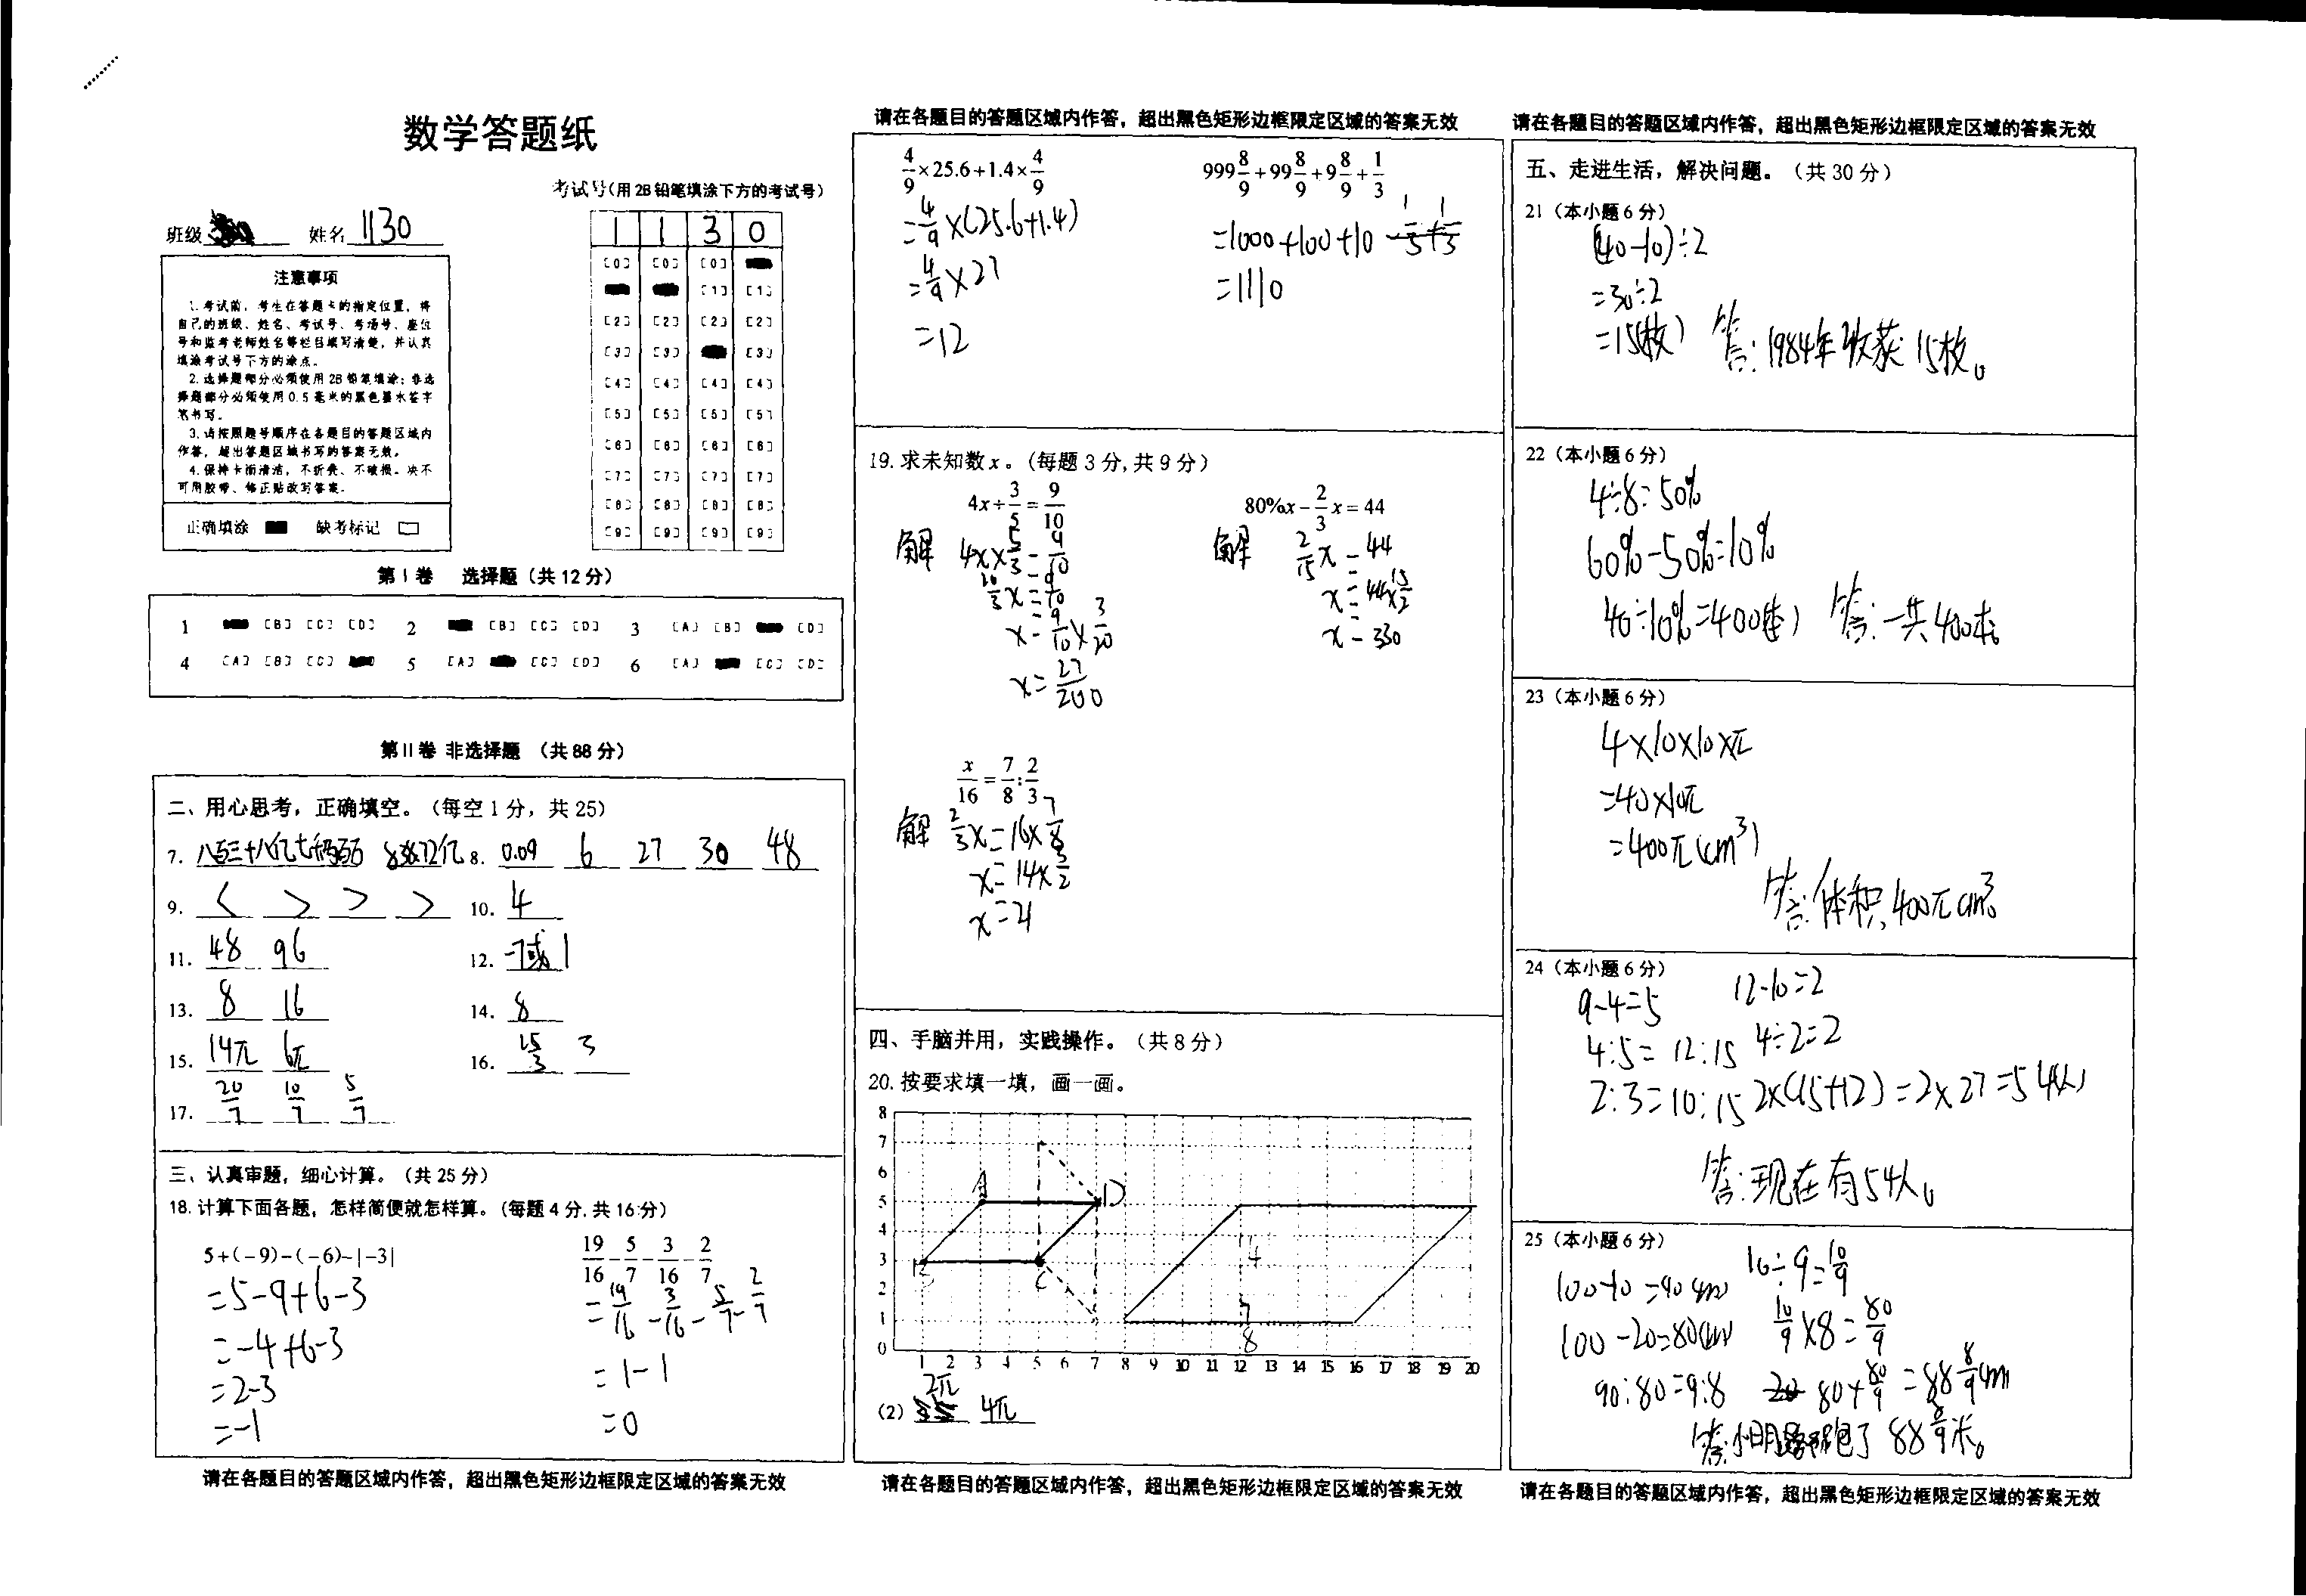 数学答题纸
考试号(用2B铅笔填涂下方的考试号)
班级 姓名 1130
1 1 3 0
[0] [0] [0]
[1] [1]
[2] [2] [2] [2]
[3] [3] [3]
[4] [4] [4] [4]
[5] [5] [5] [5]
[6] [6] [6] [6]
[7] [7] [7] [7]
[8] [8] [8] [8]
[9] [9] [9] [9]
注意事项
1.考试前,考生在答题卡的指定位置,将
自己的班级、姓名、考试号、考场号、座位
号和监考老师姓名等栏目填写清楚,并认真
填涂考试号下方的涂点。
2.选择题部分必须使用2B铅笔填涂;非选
择题部分必须使用0.5毫米的黑色墨水签字
笔书写。
3.请按照题号顺序在各题目的答题区域内
作答,超出答题区域书写的答案无效。
4.保持卡面清洁,不折叠、不破损。决不
可用胶带、修正贴改写答案。
正确填涂 缺考标记
第Ⅰ卷 选择题(共12分)
1 [B] [C] [D] 2 [B] [C] [D] 3 [A] [B] [D]
4 [A] [B] [C] 5 [A] [C] [D] 6 [A] [C] [D]
第Ⅱ卷 非选择题 (共88分)
二、用心思考,正确填空。(每空1分,共25)
7. 八百三十八亿七千 838.72亿 8. 0.09 6 27 30 48
9. < > > > 10. 4
11. 48 96 12. -7或1
13. 8 16 14. 8
15. 14π 6π 16. 25/3 3
17. 20/7 10/7 5/7
三、认真审题,细心计算。(共25分)
18.计算下面各题,怎样简便就怎样算。(每题4分,共16分)
5+(-9)-(-6)-|-3|
=5-9+6-3
=-4+6-3
=2-3
=-1
19/16-5/7-3/16-2/7
=19/16-3/16-5/7-2/7
=1-1
=0
请在各题目的答题区域内作答,超出黑色矩形边框限定区域的答案无效
请在各题目的答题区域内作答,超出黑色矩形边框限定区域的答案无效
4/9×25.6+1.4×4/9
=4/9×(25.6+1.4)
=4/9×27
=12
999 8/9+99 8/9+9 8/9+1/3
=1000+100+10-1/3+1/3
=1110
19.求未知数x。(每题3分,共9分)
4x÷3/5=9/10
解 4x×5/3=9/10
20/3x=9/10
x=9/10×3/20
x=27/200
80%x-2/3x=44
解 2/15x=44
x=44×15/2
x=330
x/16=7/8:2/3
解 2/3x=16×7/8
x=14×3/2
x=21
四、手脑并用,实践操作。(共8分)
20.按要求填一填,画一画。
8
7
6
5
4
3
2
1
0
A D
B C
4
8
1 2 3 4 5 6 7 8 9 10 11 12 13 14 15 16 17 18 19 20
(2) 2π 4π
请在各题目的答题区域内作答,超出黑色矩形边框限定区域的答案无效
请在各题目的答题区域内作答,超出黑色矩形边框限定区域的答案无效
五、走进生活,解决问题。(共30分)
21(本小题6分)
(40-10)÷2
=30÷2
=15(枚) 答:1984年收获15枚。
22(本小题6分)
4÷8=50%
60%-50%=10%
40÷10%=400(本) 答:一共400本。
23(本小题6分)
4×10×10×π
=40×10π
=400π(cm³)
答:体积400πcm³。
24(本小题6分)
9-4=5 12-10=2
4:5=12:15 4÷2=2
2:3=10:15 2×(15+12)=2×27=54(人)
答:现在有54人。
25(本小题6分)
100-10=90(m) 10÷9=10/9
100-20=80(m) 10/9×8=80/9
90:80=9:8 80+80/9=88 8/9(m)
答:小明跑了88 8/9米。
请在各题目的答题区域内作答,超出黑色矩形边框限定区域的答案无效